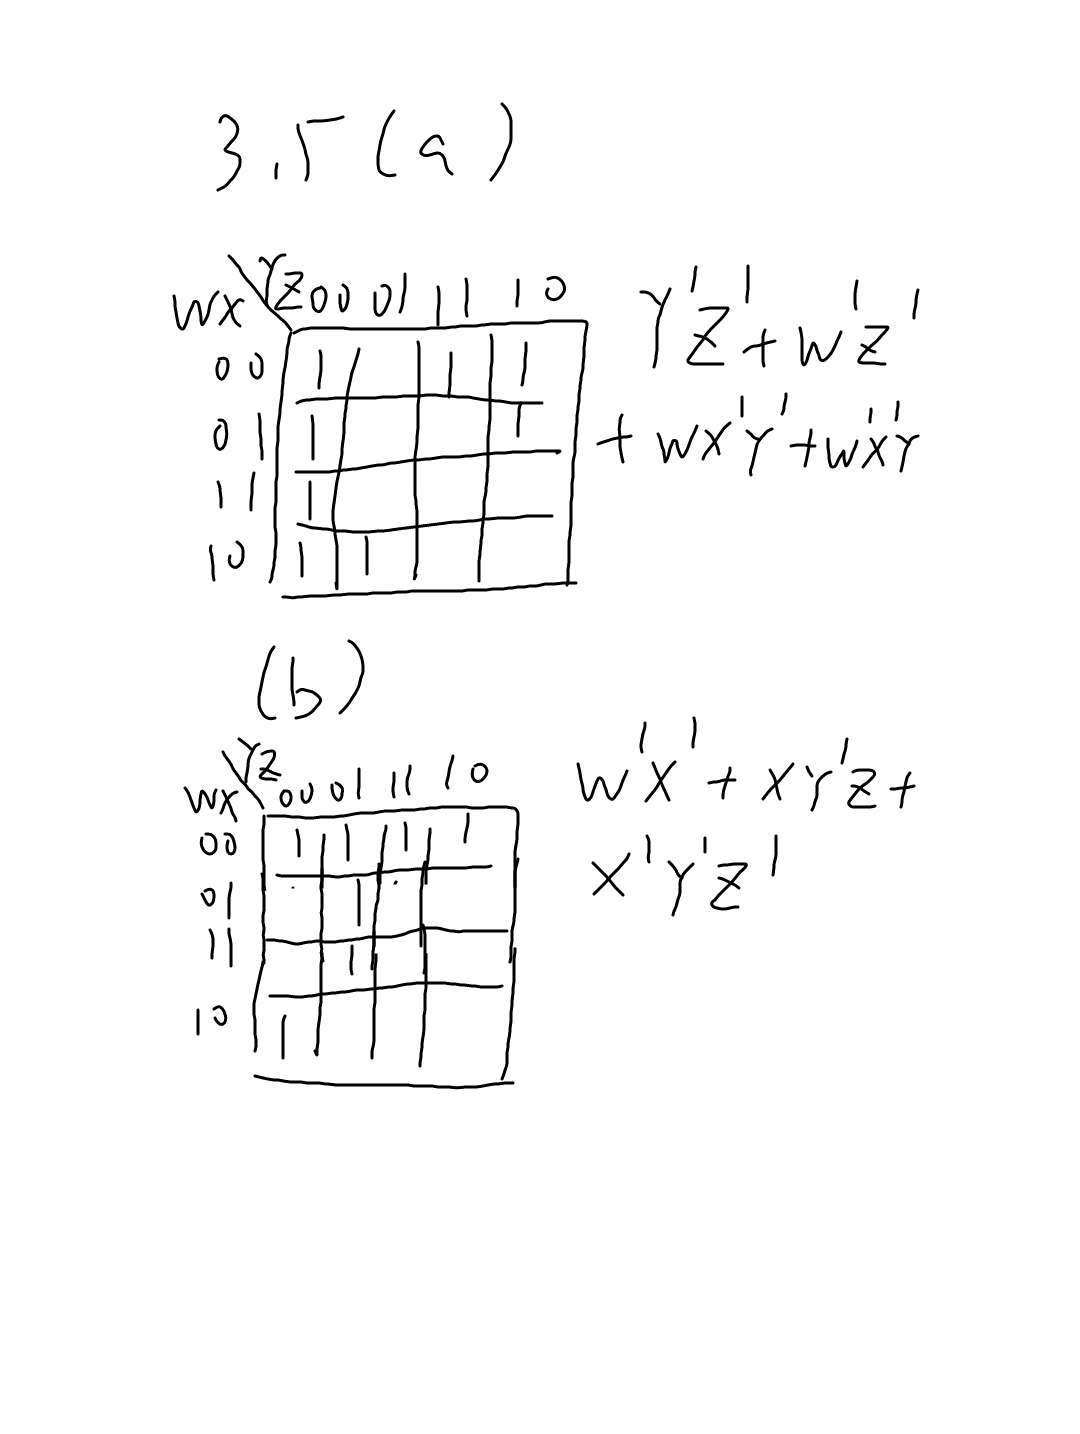 3.5 (a)
YZ 00 01 11 10
WX
00 1 1 1
01 1 1
11 1
10 1 1
Y'Z' + W'Z'
+ WX'Y' + W'X'Y
(b)
YZ 00 01 11 10
WX
00 1 1 1 1
01 1
11 1
10 1
W'X' + XY'Z +
X'Y'Z'